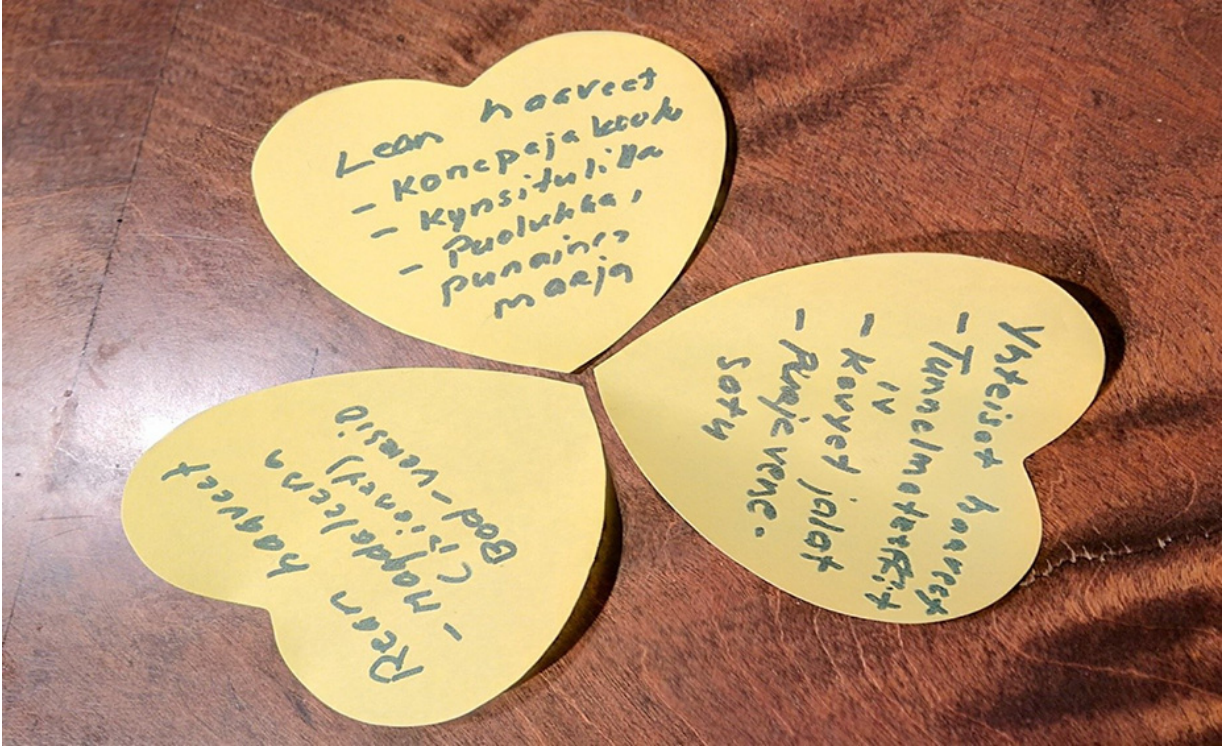 Lean haaveet
- Konepaja koulu
- Kynsitulilla
- Puolukka,
punainen
marja
Yhteiset haaveet
- Tunnelmatersity
iv
- Kavyet jalat
- vene.
Satu
Rean haaveet
- Magdaleena
(pieney)
Bad-versio